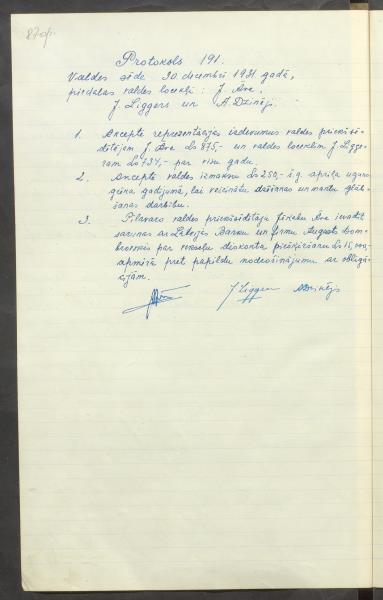 87 op.
Protokols 191.
Valdes sēde 30. decembrī 1931. gadā,
piedalas valdes locekļi: J. Āre,
J. Liggers un A. Dzinējs.
1. Akceptē reprezentācijas izdevumus valdes priekšsē-
dētājam J. Āre Ls 875,- un valdes loceklim J. Ligge-
ram Ls 434,- par visu gadu.
2. Akceptē valdes izmaksu Ls 250,- š.g. aprīļa uguns
grēka gadījumā, lai veicinātu dzēšanas un mantu glāb-
šanas darbību.
3. Pilnvaro valdes priekšsēdētāju Jēkabu Āre ievadīt
sarunas ar Latvijas Banku un firmu Augusts Dom-
browskis par vekseļu diskonta piešķiršanu Ls 15,000,-
apmērā pret papildu nodrošinājumu ar obligā-
cijām.
J Liggers ADzinējs